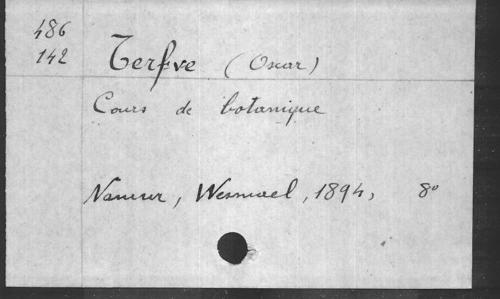 486
142
Terfve (Oscar)
Cours de botanique
Namur, Wesmael, 1894, 8°